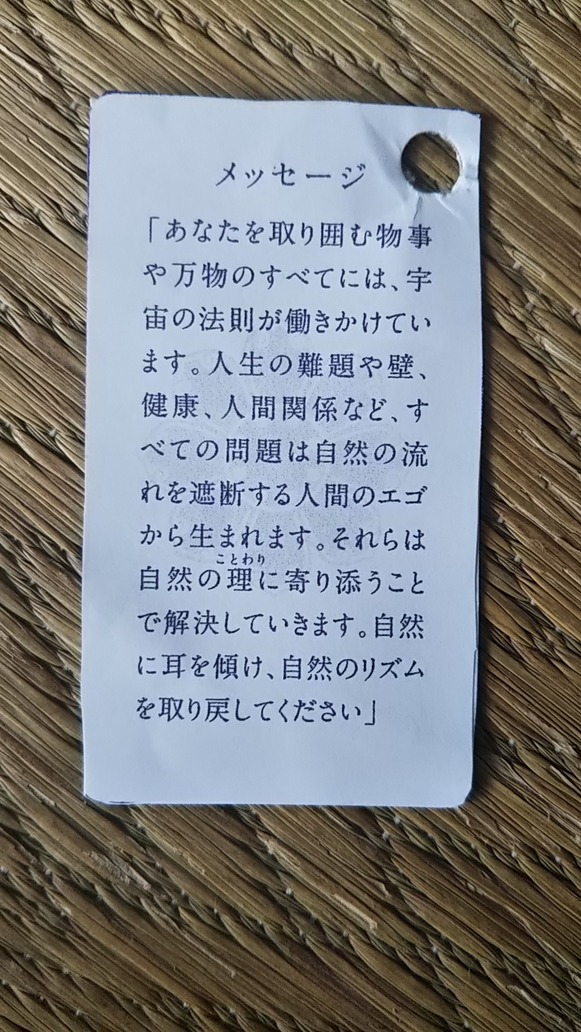 メッセージ
「あなたを取り囲む物事
や万物のすべてには、宇
宙の法則が働きかけてい
ます。人生の難題や壁、
健康、人間関係など、す
べての問題は自然の流
れを遮断する人間のエゴ
から生まれます。それらは
ことわり
自然の理に寄り添うこと
で解決していきます。自然
に耳を傾け、自然のリズム
を取り戻してください」